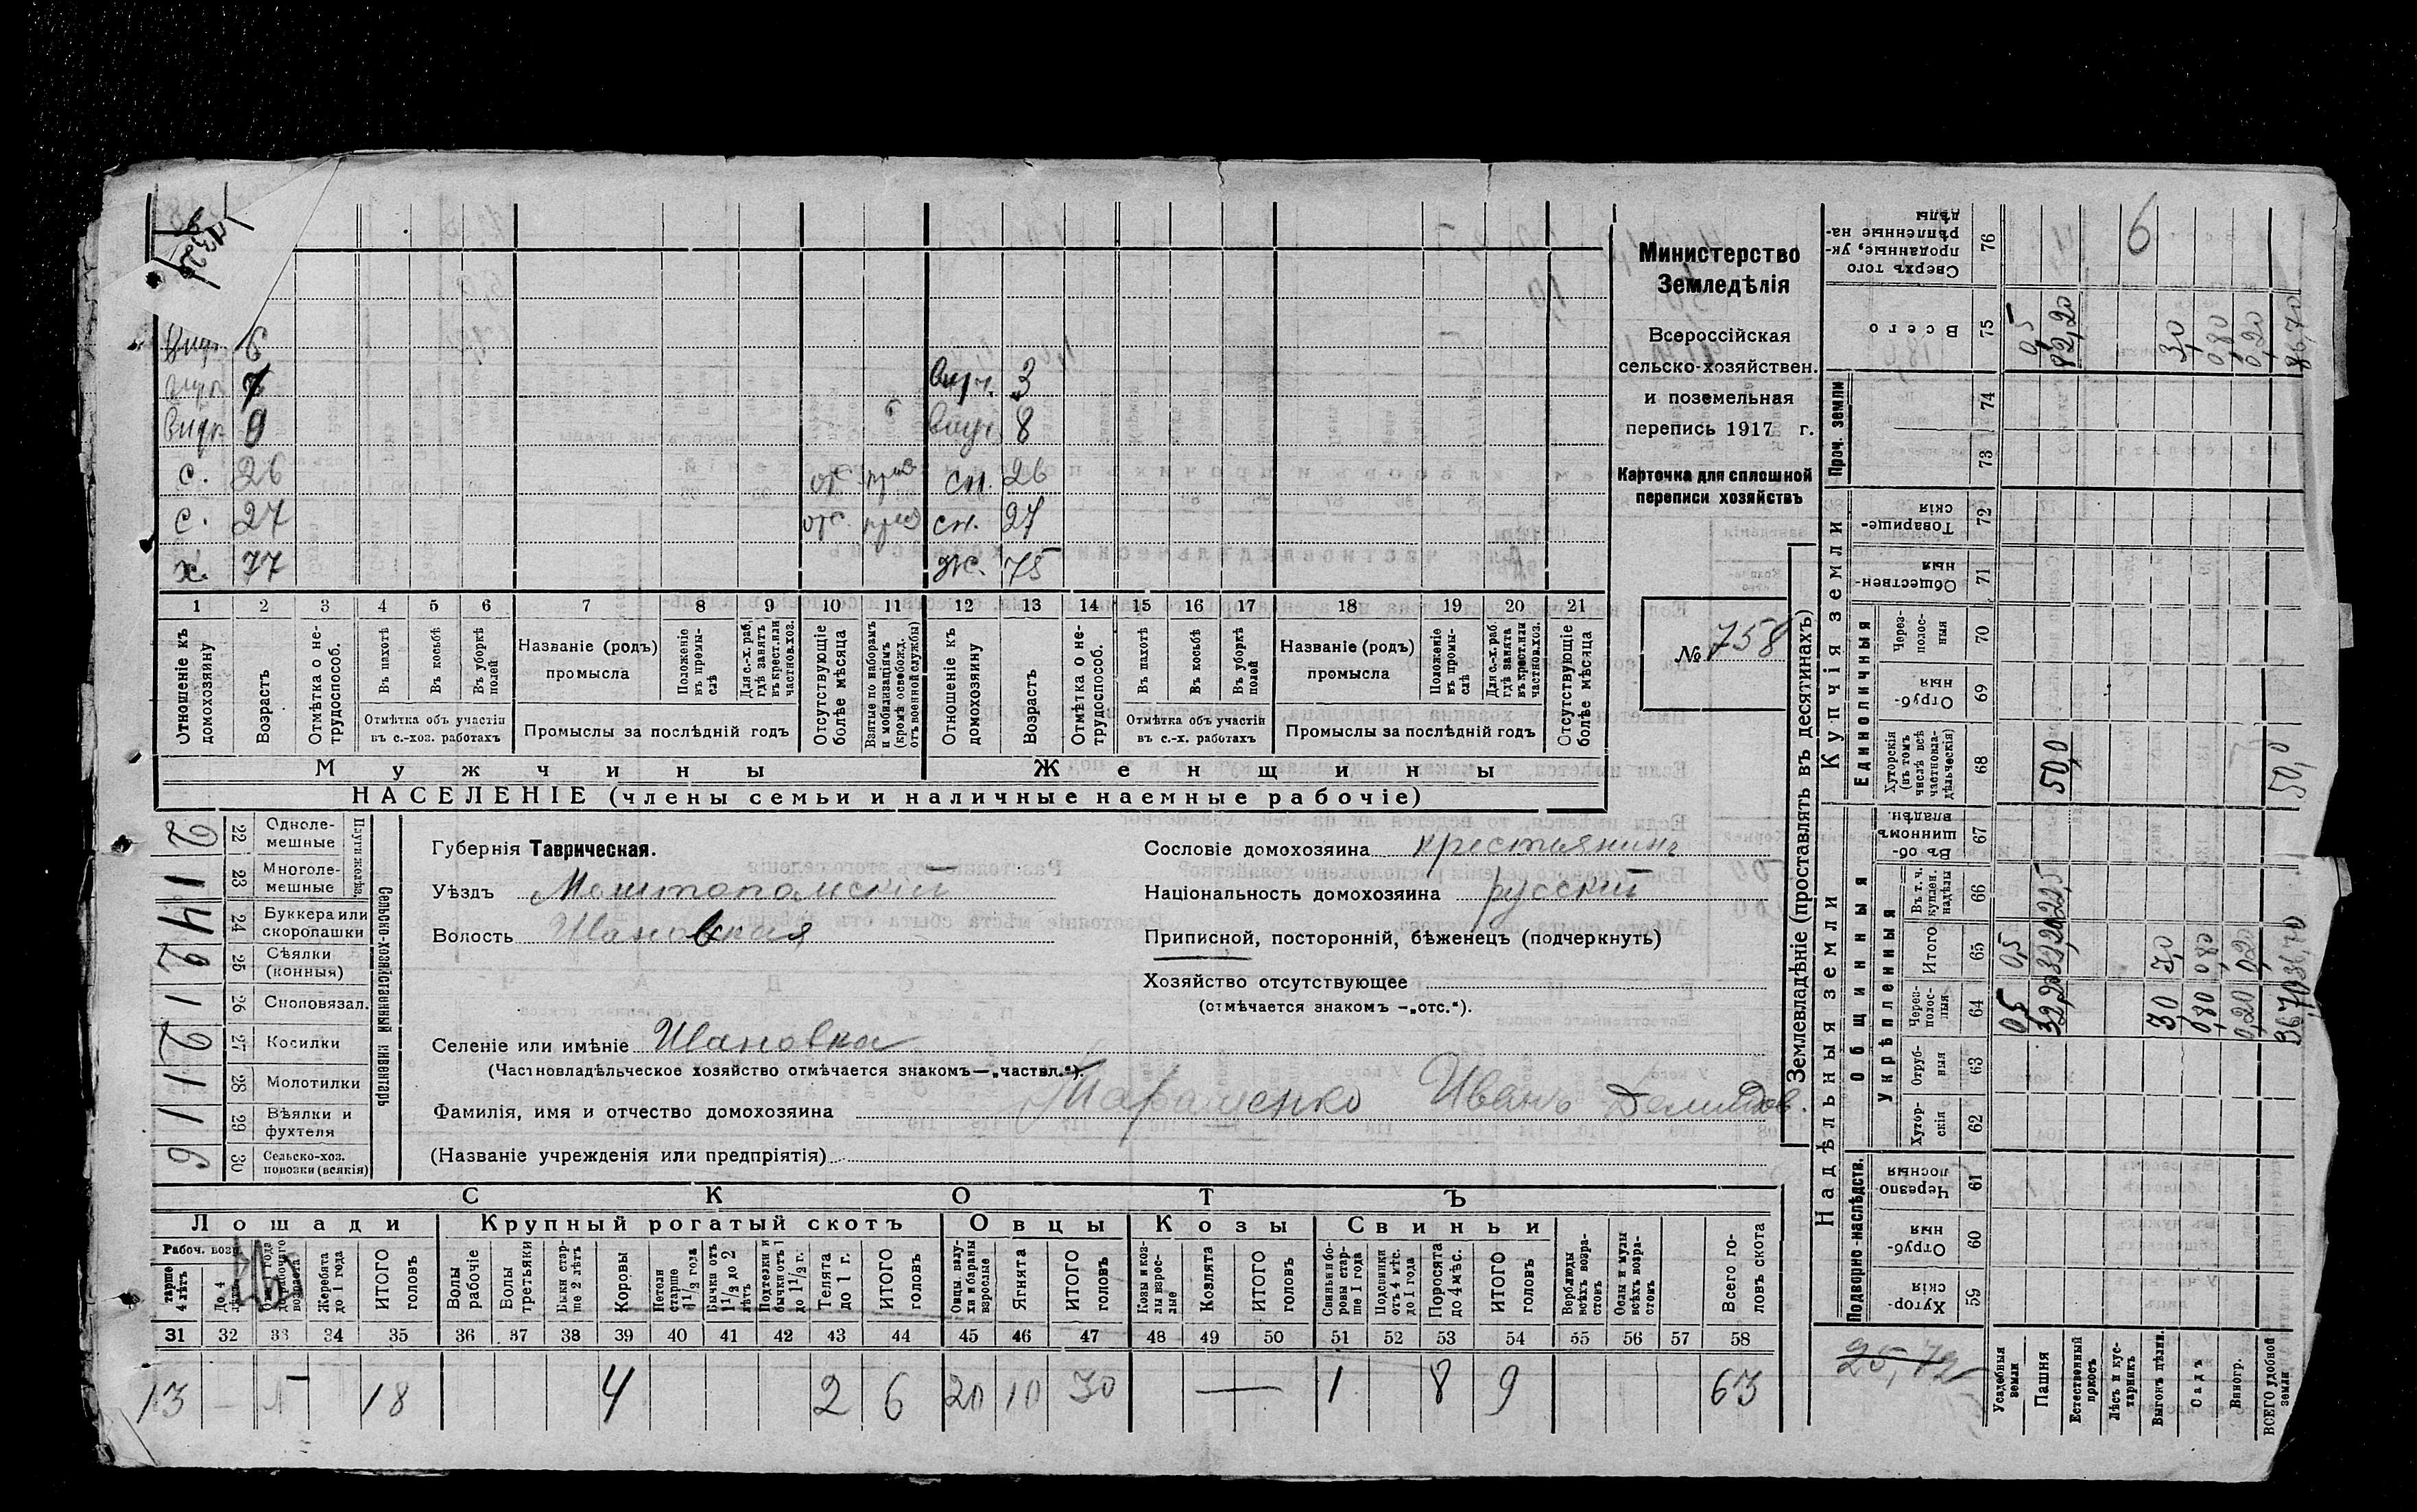 внук. 6
внук 7 внуч. 3
внук 9 внуч. 8
с. 26 отс. приз. сн. 26
с. 27 отс. приз сн. 27
х. 77 ж. 75
1 2 3 4 5 6 7 8 9 10 11 12 13 14 15 16 17 18 19 20 21
Отношеніе къ домохозяину
Возрастъ
Отмѣтка о нетрудоспособ.
Въ пахотѣ
Въ косьбѣ
Въ уборкѣ полей
Отмѣтка объ участіи въ с.-хоз. работахъ
Названіе (родъ) промысла
Положеніе въ промыслѣ
Для с.-х. раб. гдѣ занятъ въ крест. или частнов. хоз.
Промыслы за послѣдній годъ
Отсутствующіе болѣе мѣсяца
Взятые по наборамъ и мобилизаціямъ (кромѣ освобожд. отъ военной службы)
Отношеніе къ домохозяину
Возрастъ
Отмѣтка о нетрудоспособ.
Въ пахотѣ
Въ косьбѣ
Въ уборкѣ полей
Отмѣтка объ участіи въ с.-х. работахъ
Названіе (родъ) промысла
Положеніе въ промыслѣ
Для с.-х. раб. гдѣ занята въ крест. или частнов. хоз.
Промыслы за послѣдній годъ
Отсутствующіе болѣе мѣсяца
Мужчины Женщины
НАСЕЛЕНІЕ (члены семьи и наличные наемные рабочіе)
Министерство
Земледѣлія
Всероссійская
сельско-хозяйствен.
и поземельная
перепись 1917 г.
Карточка для сплошной
переписи хозяйствъ
№ 758
Сельско-хозяйственный инвентарь
Плуги желѣз.
2 22 Однолемешные
1 23 Многолемешные
4 24 Буккера или скоропашки
2 25 Сѣялки (конныя)
1 26 Сноповязал.
2 27 Косилки
1 28 Молотилки
1 29 Вѣялки и фухтеля
6 30 Сельско-хоз. повозки (всякія)
Губернія Таврическая.
Уѣздъ
Волость
Сословіе домохозяина крестьянинъ
Національность домохозяина русскій
Приписной, посторонній, бѣженецъ (подчеркнуть)
Хозяйство отсутствующее
(отмѣчается знакомъ —„отс.“).
Селеніе или имѣніе
(Частновладѣльческое хозяйство отмѣчается знакомъ—„частвл.“).
Фамилія, имя и отчество домохозяина Иванъ Демидов.
(Названіе учрежденія или предпріятія)
СКОТЪ
Лошади Крупный рогатый скотъ Овцы Козы Свиньи
Рабоч. возр.
Старше 4 лѣтъ
До 4 лѣтъ
Жеребята до 1 года
ИТОГО головъ
Волы рабочіе
Волы третьяки
Быки старше 2 лѣтъ
Коровы
Нетели старше 1 1/2 года
Бычки отъ 1 1/2 до 2 лѣтъ
Подтелки и бычки отъ 1 до 1 1/2 г.
Телята до 1 г.
ИТОГО головъ
Овцы, валухи и бараны взрослые
Ягнята
ИТОГО головъ
Козы и козлы взрослые
Козлята
ИТОГО головъ
Свиньи и боровы старше 1 года
Подсвинки отъ 4 мѣс. до 1 года
Поросята до 4 мѣс.
ИТОГО головъ
Верблюды всѣхъ возрастовъ
Ослы и мулы всѣхъ возрастовъ
Всего головъ скота
31 32 33 34 35 36 37 38 39 40 41 42 43 44 45 46 47 48 49 50 51 52 53 54 55 56 57 58
13 — 5 18 4 2 6 20 10 30 — 1 8 9 63
Землевладѣніе (проставлять въ десятинахъ)
Купчія земли
Надѣльныя земли
Единоличныя
Общинныя
Укрѣпленныя
Подворно-наслѣдств.
Проч. земли
Сверхъ того проданные, укрѣпленные надѣлы 76 6
Всего 75 0,5 82,20 3,0 0,80 0,20 86,70
74
73
Товарищескія 72
Общественныя 71
Черезполосныя 70
Отрубныя 69
Хуторскія (въ томъ числѣ всѣ частновладѣльческія) 68 50,0 50,0
Въ общинномъ владѣн. 67
Въ т. ч. куплен. надѣлы 66 22,5
Итого 65 0,5 32,20 3,0 0,80 0,20 36,70
Черезполосныя 64 0,5 32,20 3,0 0,80 0,20 36,70
Отрубныя 63
Хуторскія 62
Черезполосныя 61
Отрубныя 60
Хуторскія 59
25,72
Усадебныя земли
Пашня
Естественный
Лѣсъ и кустарникъ
Выгонъ цѣлин.
Садъ
Виногр.
ВСЕГО удобной земли